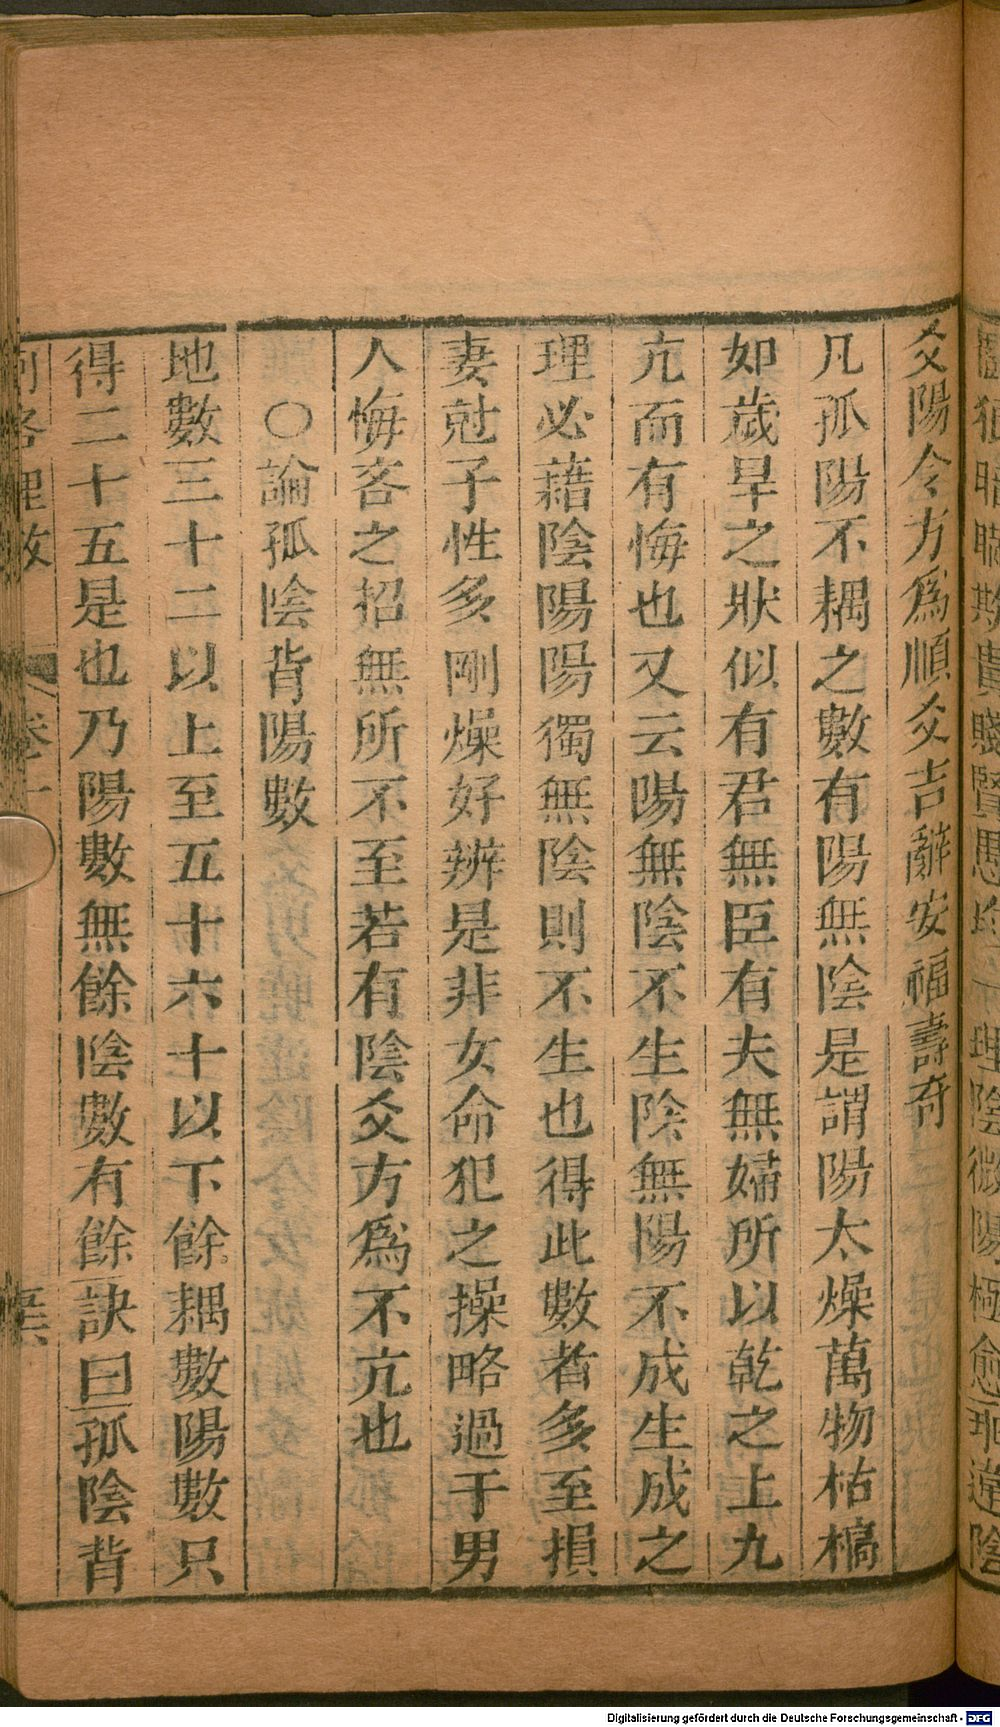 爻陽令方爲順爻吉辭安福壽奇
凡孤陽不耦之數有陽無陰是謂陽太燥萬物枯槁
如歲旱之狀似有君無臣有夫無婦所以乾之上九
亢而有悔也又云陽無陰不生陰無陽不成生成之
理必藉陰陽陽獨無陰則不生也得此數者多至損
妻尅子性多剛燥好辨是非女命犯之操略過于男
人悔吝之招無所不至若有陰爻方爲不亢也
〇論孤陰背陽數
地數三十二以上至五十六十以下餘耦數陽數只
得二十五是也乃陽數無餘陰數有餘訣曰孤陰背
Digitalisierung gefördert durch die Deutsche Forschungsgemeinschaft - DFG